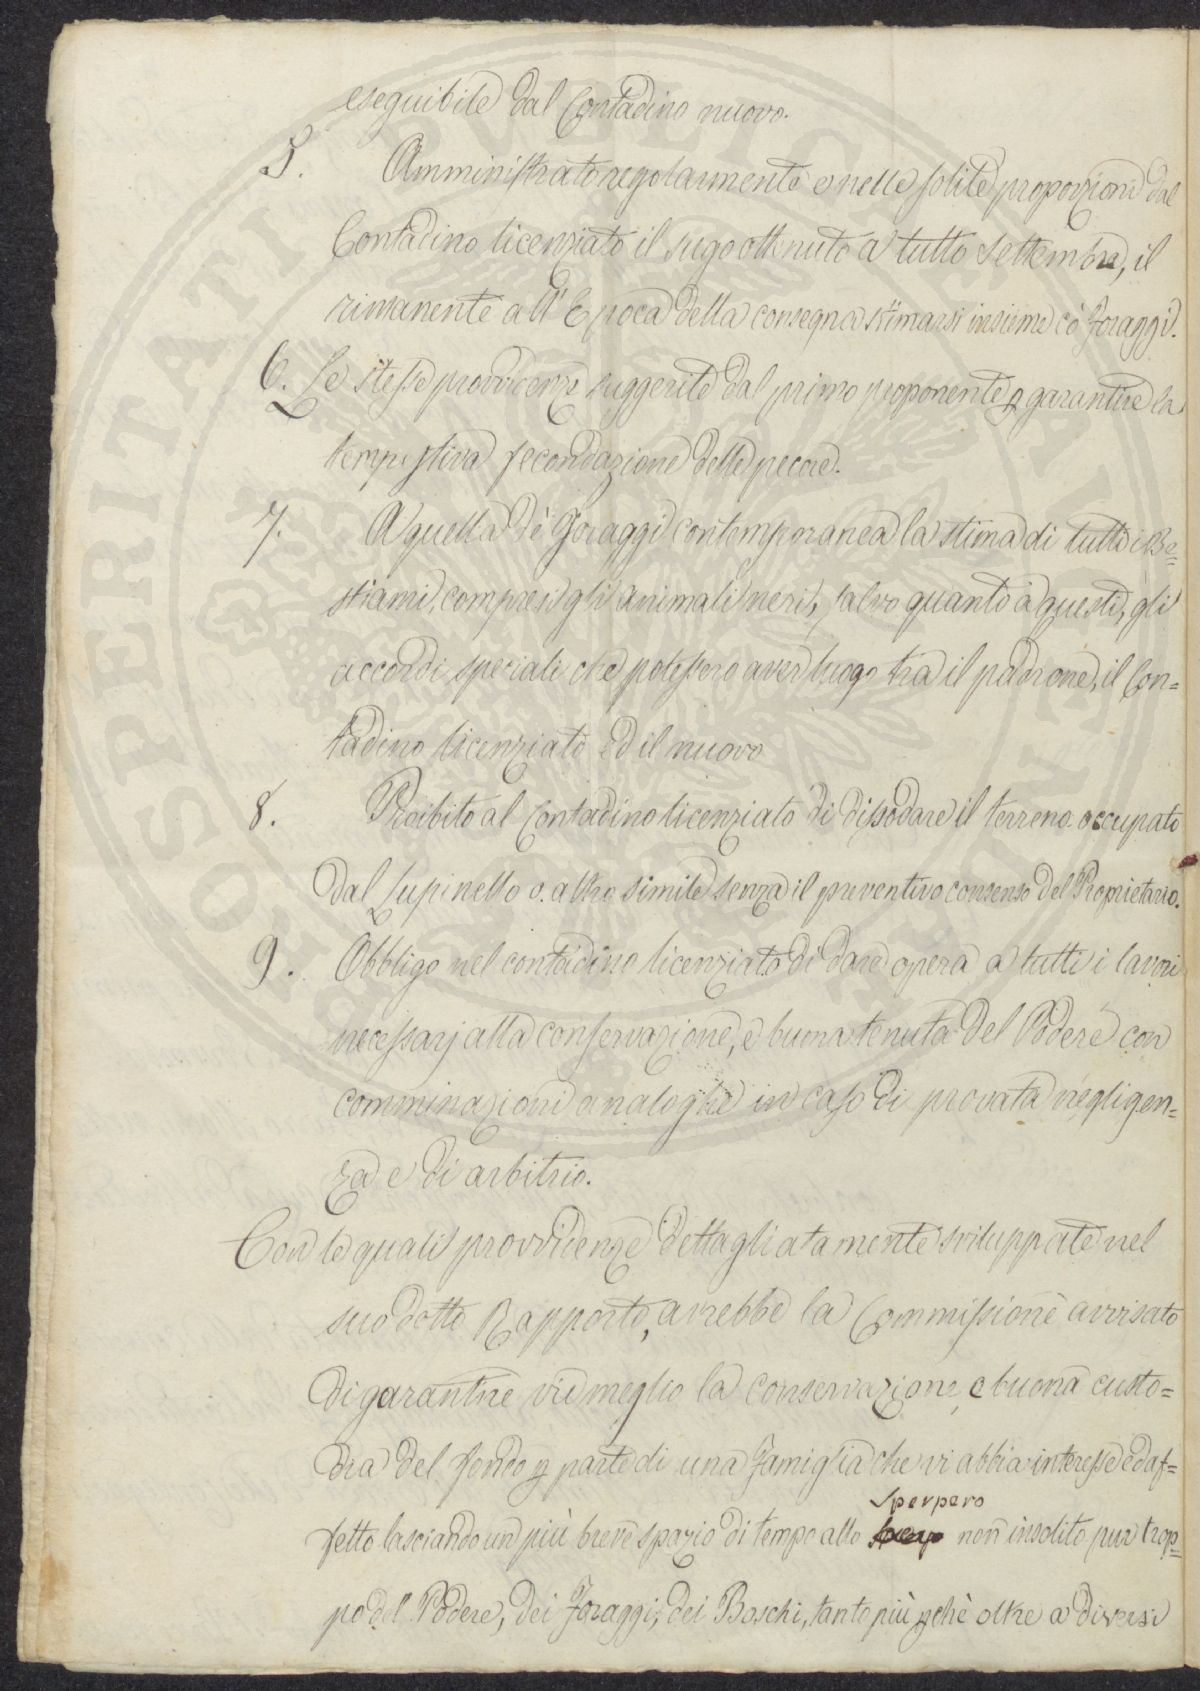 eseguibile dal Contadino nuovo.
5. Amministrato regolarmente e nelle solite proporzioni dal
Contadino licenziato il sugo ottenuto a tutto Settembre, il
rimanente all'Epoca della consegna stimarsi insieme cò foraggi.
6. Le stesse provvidenze suggerite dal primo proponente p garantire la
tempestiva fecondazione delle pecore.
7. A quella dè Foraggi contemporanea la stima di tutti i Be=
stiami, compresi gli animali neri, salvo quanto a questi, gli
accordi speciali che potessero aver luogo tra il padrone, il Con=
tadino licenziato ed il nuovo
8. Proibito al Contadino licenziato di dissodare il terreno occupato
dal Lupinello o altro simile senza il preventivo consenso del Proprietario.
9. Obbligo nel contadino licenziato di dare opera a tutti i lavori
necessarj alla conservazione, e buona tenuta del Podere con
comminazioni analoghe in caso di provata negligen=
za e di arbitrio.
Con le quali provvidenze dettagliatamente sviluppate nel
suo dotto Rapporto, avrebbe la Commissione avvisato
di garantire viemeglio la conservazione, e buona custo=
dia del fondo p parte di una Famiglia che vi abbia interesse ed af=
Sperpero
fetto lasciando un più breve spazio di tempo allo non insolito pur trop=
po del Podere, dei Foraggi, dei Boschi, tanto più pchè oltre a diversi
PVBLICAE
PROSPERITATI